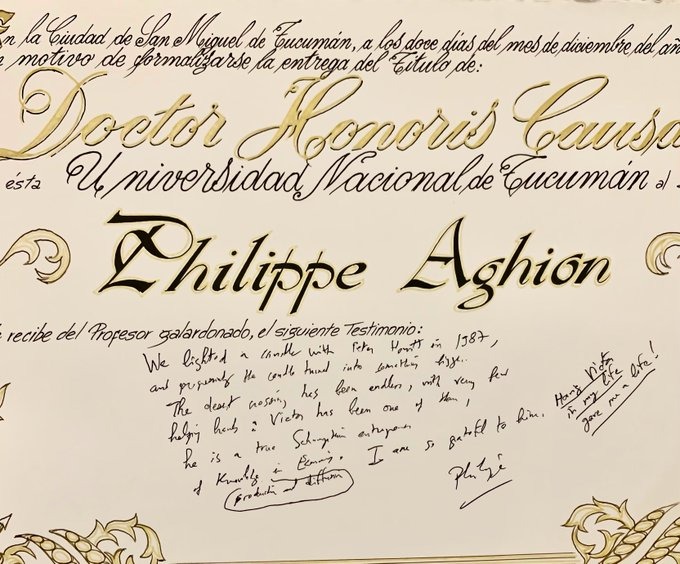 en la Ciudad de San Miguel de Tucumán, a los doce días del mes de diciembre del añ
motivo de formalizarse la entrega del Título de:
Doctor Honoris Causa
ésta Universidad Nacional de Tucumán al
Philippe Aghion
recibe del Profesor galardonado, el siguiente Testimonio:
We lighted a candle with Peter Howitt in 1987,
and progressively the candle turned into something bigger.
The desert crossing has been endless, with very few
helping hands: Victor has been one of them,
he is a true Schumpeterian entrepreneur
of knowledge in Economics. I am so grateful to him.
production and diffusion
Philippe
Having Victor
in my life
gave me a life!